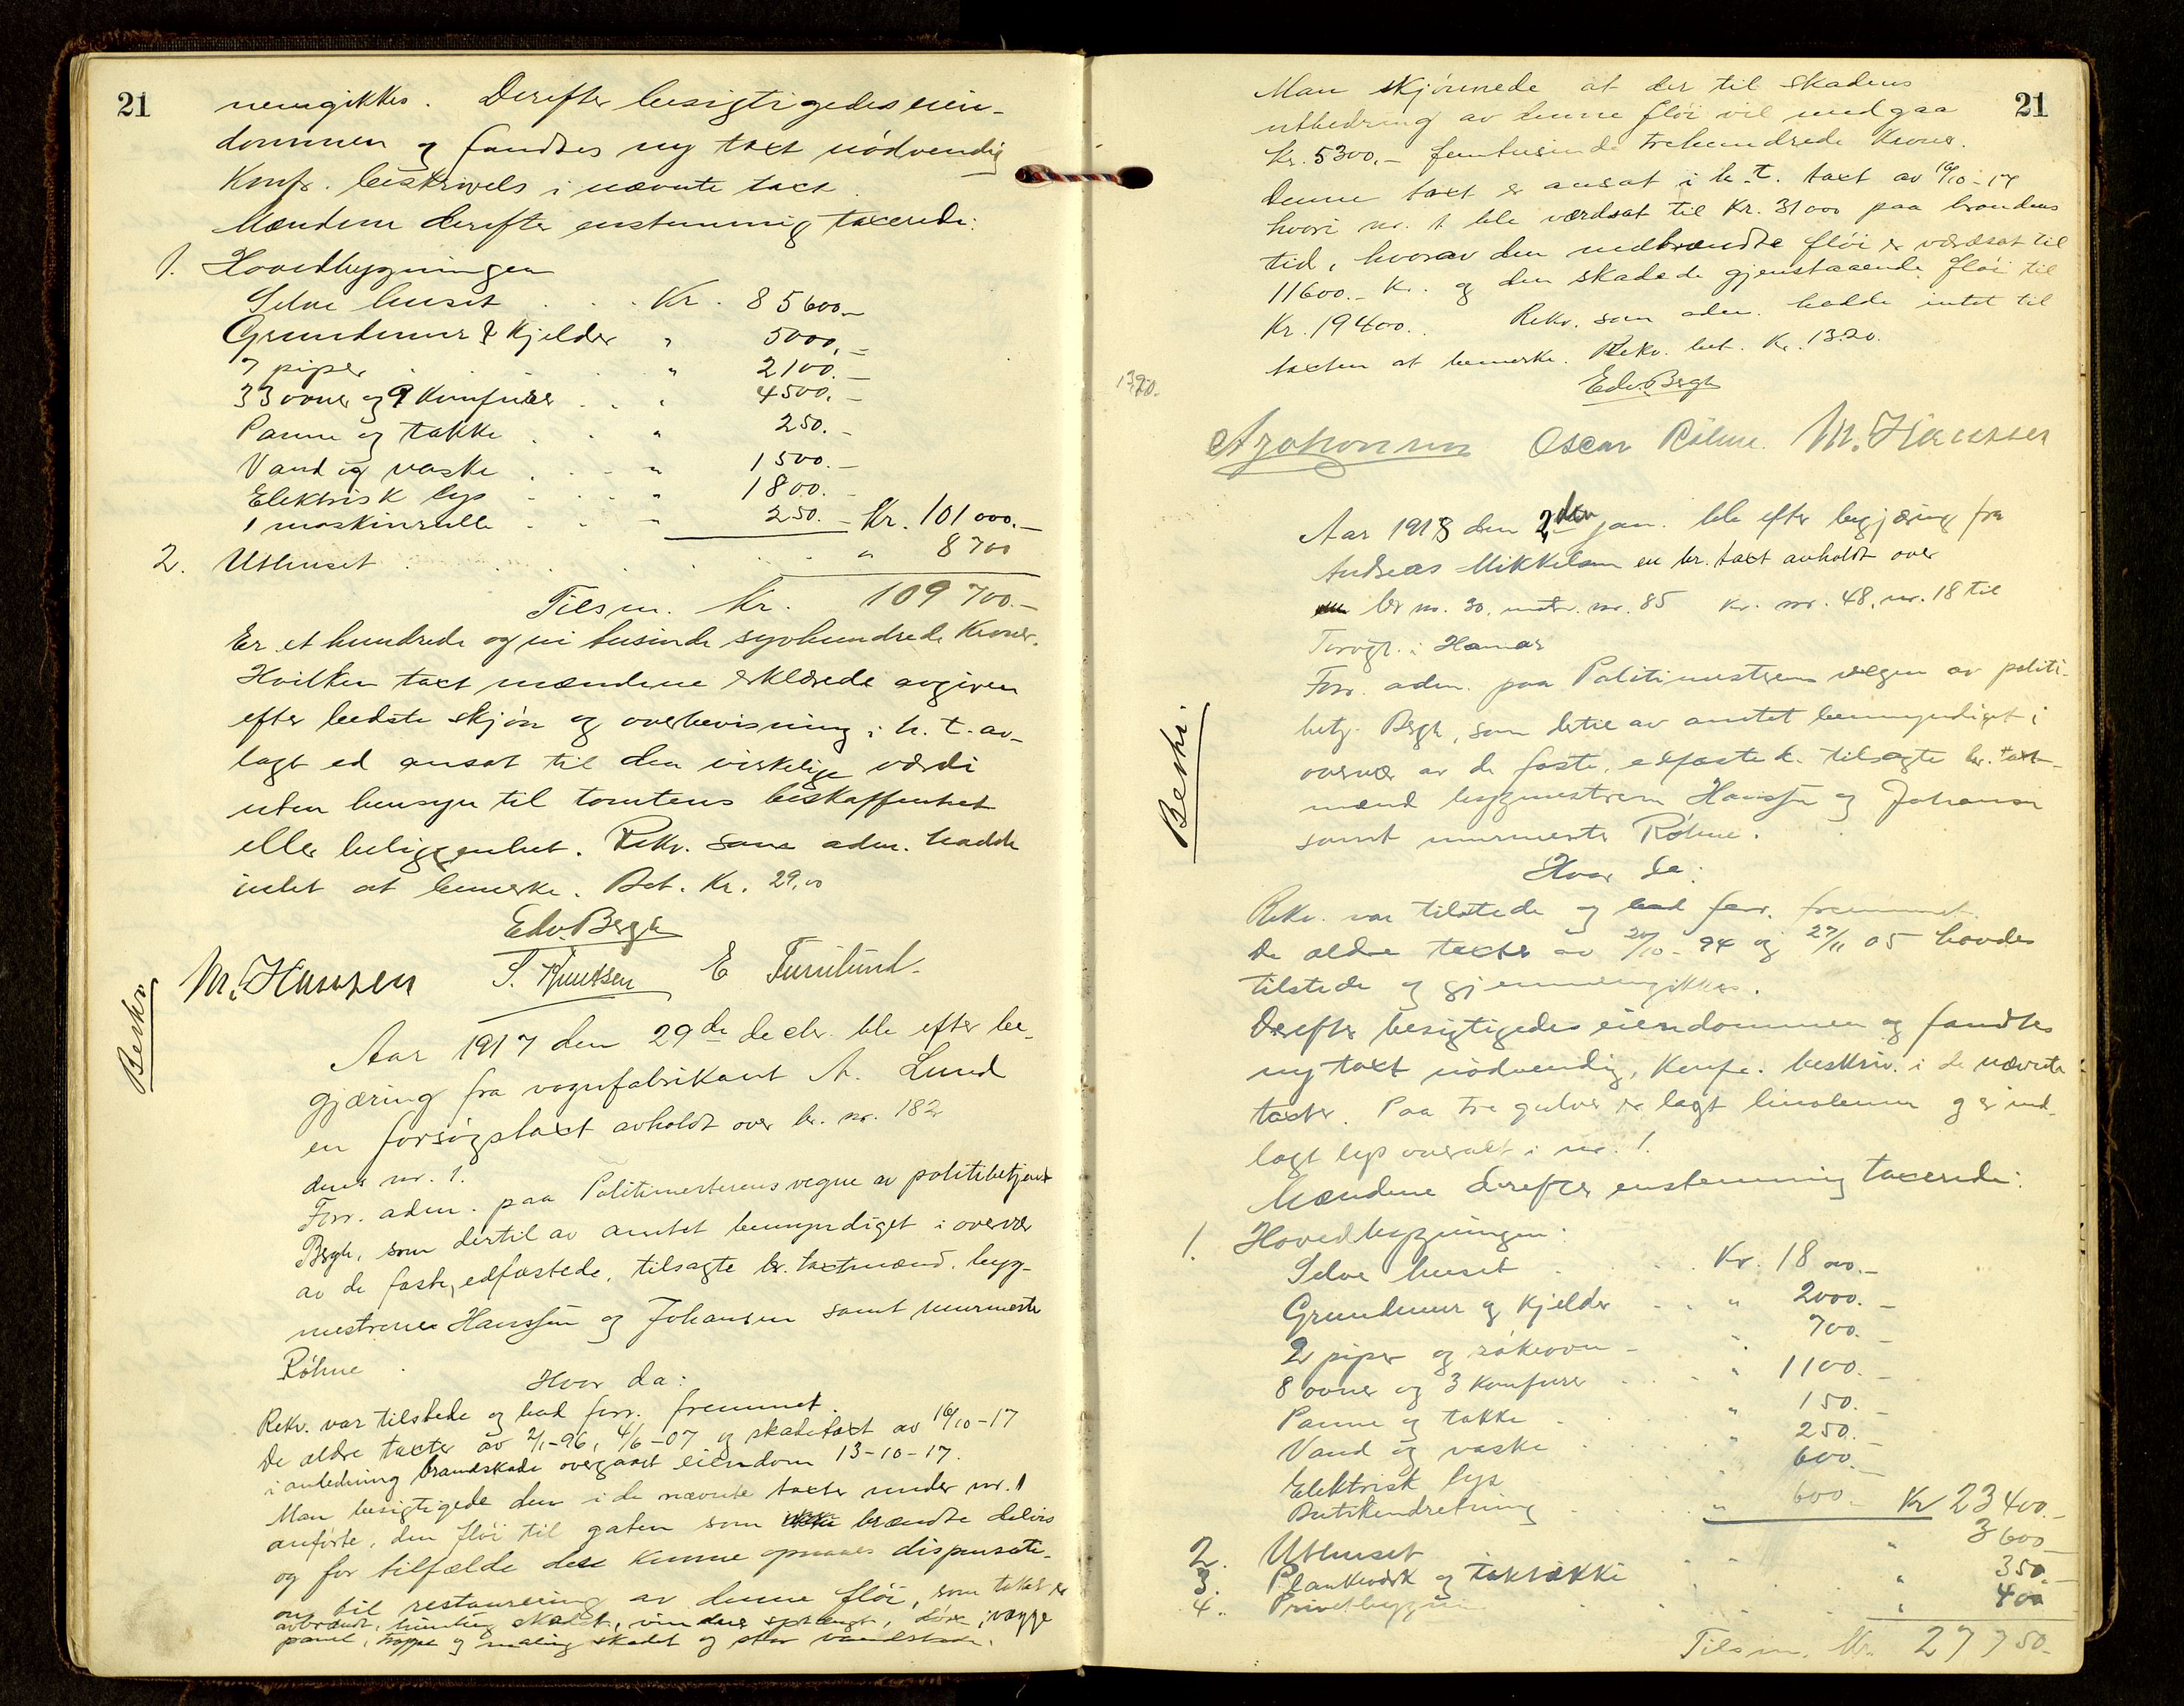 21
nemgikkes. Derefter besigtigedes eien-
dommen og fandtes ny taxt nödvendig
Konfr. beskrivels i nævnte taxt.
Mændene derefter enstemmig taxerede:
1. Hovedbygningen
Selve huset . . . Kr. 85600.-
Grundmur & Kjelder " 5000,-
7 piper . . " 2100.-
33 ovner og 9 Komfurer . . " 4500.-
Panne og takke . . " 250.-
Vand og vaske . . . " 1500.-
Elektrisk lys . . . " 1800.-
1 maskinrulle . . " 250.- Kr. 101000.-
2. Uthuset . . . . . " 8700
Tilsm. Kr. 109700.-
Er et hundrede og ni tusinde syvhundrede Kroner.
Hvilken taxt mændene erklærede avgiven
efter bedste skjön og overbevisning i h. t. av-
lagt ed ansat til den virkelige værdi
uten hensyn til tomtens beskaffenhet
eller beliggenhet. Rekv. som adm. hadde
intet at bemerke. Bet. Kr. 29,00
Edv. Bergh
M. Hanssen S. Knutsen E Furulund.
Beskr
Aar 1917 den 29de decbr. ble efter be-
gjæring fra vognfabrikant A. Lund
en forsögstaxt avholdt over br. nr. 182
dens nr. 1.
Forr. adm. paa Politimesterens vegne av politibetjent
Bergh, som dertil av amtet bemyndiget i overvær
av de faste, edfæstede, tilsagte br. taxtmænd, byg-
mestrene Hanssen og Johansen samt murmester
Röhne.
Hvor da:
Rekv. var tilstede og bad forr. fremmet.
De ældre taxter av 2/1-96, 4/6-07 og skadetaxt av 16/10-17
i anledning brandskade overgaaet eiendom 13-10-17.
Man besigtigede den i de nævnte taxter under nr. 1
anförte, den flöi til gaten som brændte delvis
og for tilfælde det kunne opnaaes dispensati-
on til restaurering av denne flöi, som taket er
avbrændt, himling skadet, vinduer sprængt, döre, vægge
panel, trappe og maling skadet og stor vandskade.
21
Man skjönnede at der til skadens
utbedring av denne flöi vil medgaa
Kr. 5300.- femtusinde trehundrede Kroner.
Denne taxt er ansat i h. t. taxt av 16/10-17
hvori nr. 1 ble værdsat til Kr. 31000 paa brandens
tid, hvorav den nedbrændte flöi er værdsat til
11600.- Kr. og den skadede gjenstaaende flöi til
Kr. 19400. Rekv. som adm. hadde intet til
taxten at bemerke. Rekv. bet. Kr. 13.20.
1320.
Edv. Bergh
A Johansen Oscar Röhne. M. Hanssen
Aar 1918 den 2den jan. ble efter begjæring fra
Andreas Mikkelsen en br. taxt avholdt over
br nr. 30, matr. nr. 85 Kr. nr. 48, nr. 18 til
Torvgt. i Hamar
Forr. adm. paa Politimesterens vegne av politi-
betj. Bergh, som dertil av amtet bemyndiget i
overvær av de faste, edfæstede, tilsagte br. taxt-
mænd bygmestrene Hanssen og Johansen
samt murmester Röhne.
Beskr.
Hvor da:
Rekv. var tilstede og bad forr. fremmet.
De ældre taxter av 20/10-94 og 27/11 05 havdes
tilstede og gjennemgikkes.
Derefter besigtigedes eiendommen og fandtes
ny taxt nödvendig, Konfr. beskriv. i de nævnte
taxter. Paa tre gulver er lagt linoleum og er ind-
lagt lys overalt i nr. 1.
Mændene derefter enstemmig taxerede:
1. Hovedbygningen:
Selve huset . . . Kr. 18000.-
Grundmur og Kjelder . . " 2000.-
2 piper og rökeovn - . " 700.-
8 ovner og 3 Komfurer . . . " 1100.-
Panne og takke . . . " 150.-
Vand og vaske . . . " 250.-
Elektrisk lys . . " 600.-
Butikindretning . . " 600.- Kr 23400.-
2. Uthuset . . . " 3600
3. Plankeværk og taktække . . " 350.-
4. Privetbygning . . . " 400
Tilsm. Kr. 27750.-